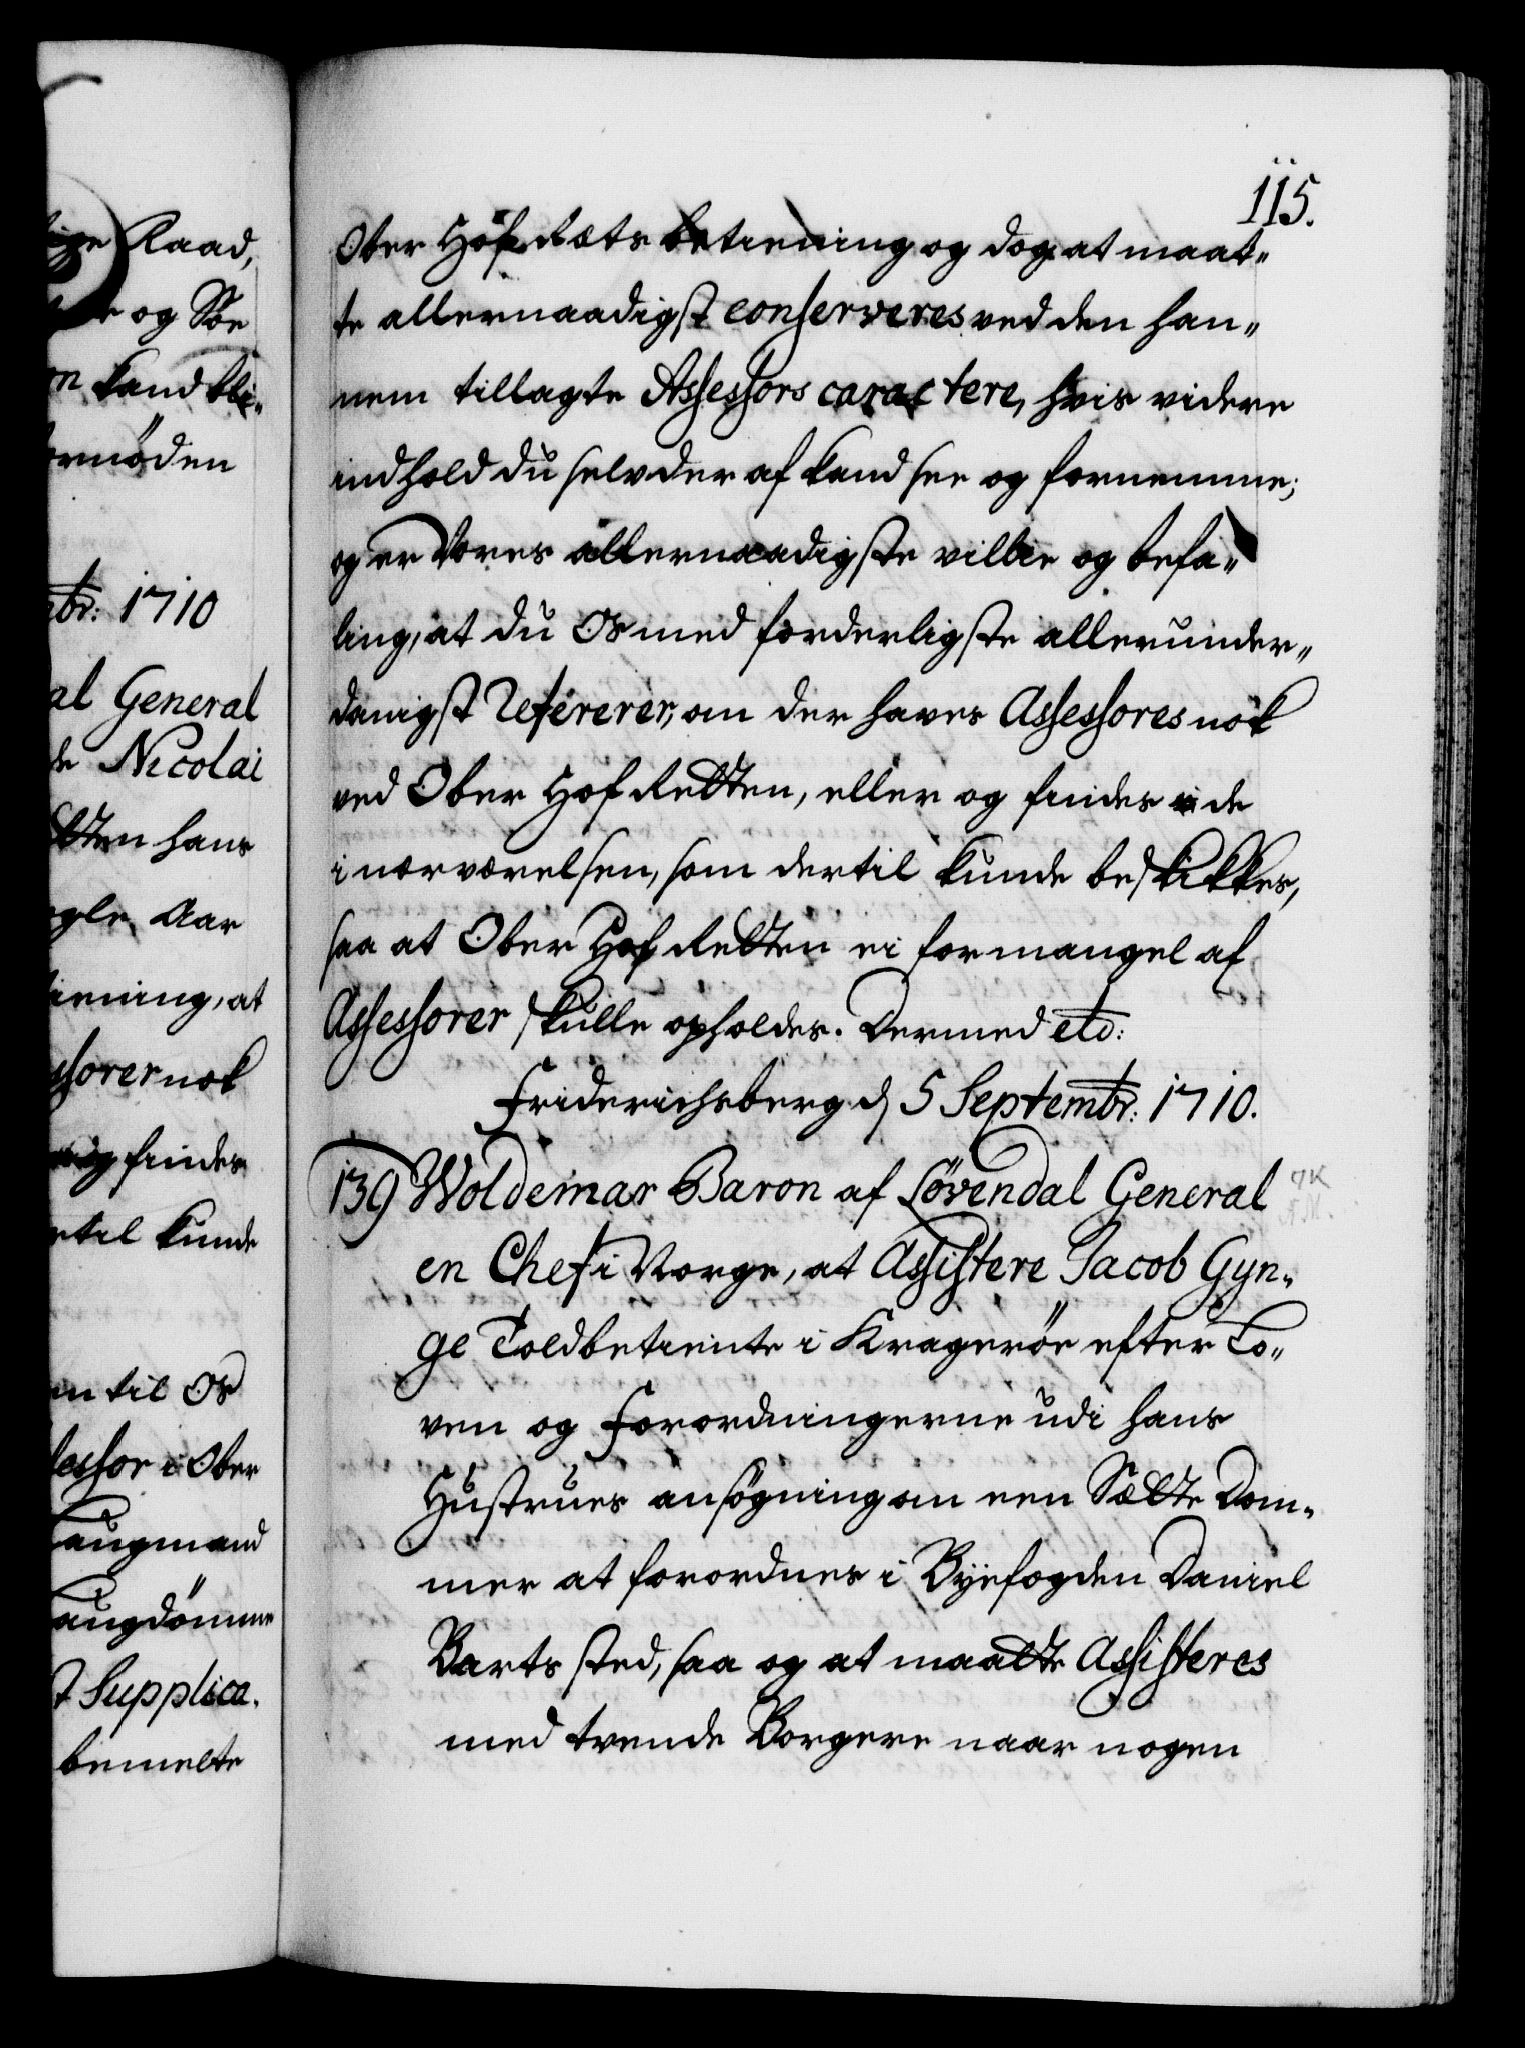 lige Raad,
e og Söe
kand bli„
ormöden
mbr: 1710
al General
de Nicolai
ætten hans
ogle Aar
iening, at
ssorer nok
og findes
ertil kunde
m til Os
sessor i Ober
Laugmand
Laugdömme
t Supplica„
bemelte
115.
Ober Hof Rets betiening og dog at maat„
te allernaadigst conserveres ved den han„
nem tillagte Assessors caractere, hvis videre
indhold du selv der af kand see og fornemme;
og er Vores allernaadigste villie og befa„
ling, at du Os med forderligste allerunder„
danigst Refererer, om der haves Assessores nok
ved Ober Hof Retten, eller og findes i de
i nærværelsen, som dertil kunde beskikkes,
saa at Ober Hof Retten ei for mangel af
Assessorer skulle opholdes. Dermed etc:
Friderichsberg d 5 Septembr: 1710.
139 Woldemar Baron af Lövendal General
en Chef i Norge, at Assistere Jacob Gyn„
ge Toldbetiente i Krageröe efter Lo„
ven og Forordningerne udi hans
Hustrues ansögning om een Sætte Dom„
mer at forordnes i Byefogden Daniel
Barts sted, saa og at maatte Assisteres
med tvende Borgere naar nogen